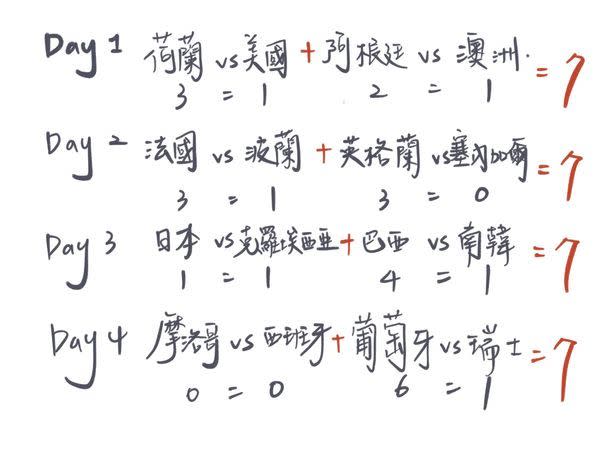 Day 1 荷蘭 vs 美國 + 阿根廷 vs 澳洲. = 7
3 = 1 2 = 1
Day 2 法國 vs 波蘭 + 英格蘭 vs 塞內加爾 = 7
3 = 1 3 = 0
Day 3 日本 vs 克羅埃西亞 + 巴西 vs 南韓 = 7
1 = 1 4 = 1
Day 4 摩洛哥 vs 西班牙 + 葡萄牙 vs 瑞士 = 7
0 = 0 6 = 1